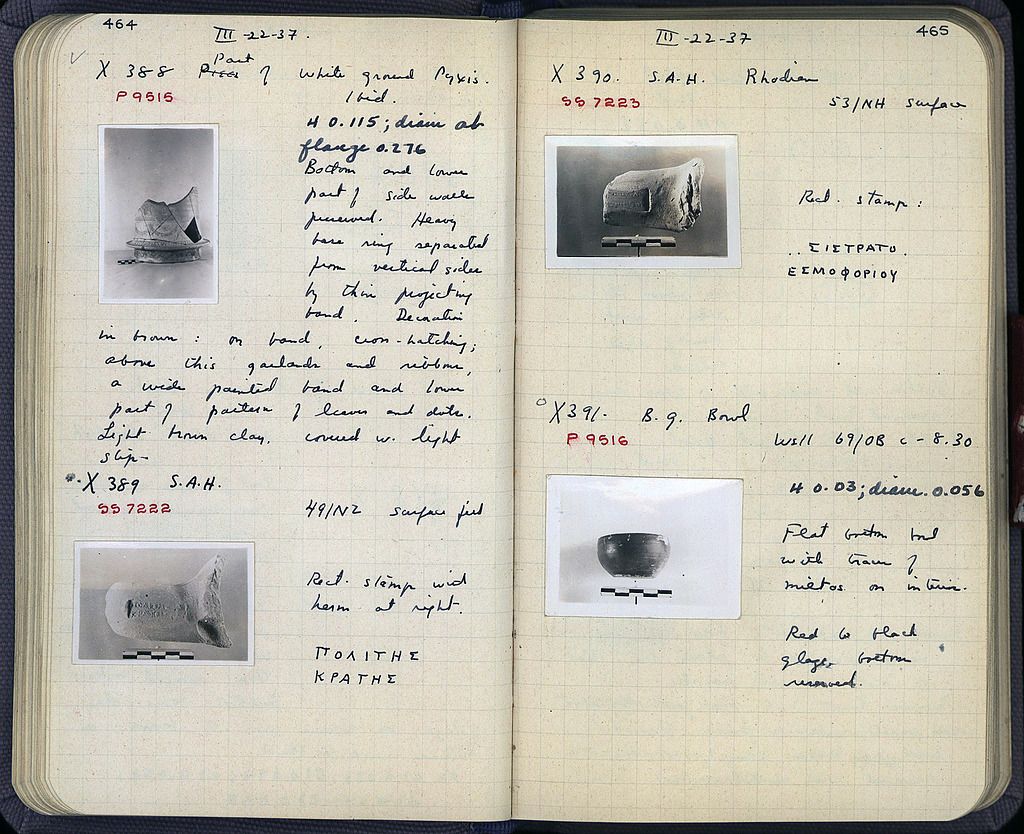 464
III -22-37.
X 388 Part of White ground Pyxis.
P 9515
Ibid.
H 0.115; diam at
flange 0.276
Bottom and lower
part of side walls
preserved. Heavy
base ring separated
from vertical sides
by thin projecting
band. Decoration
in brown: on band, cross-hatching;
above this garlands and ribbons,
a wide painted band and lower
part of pattern of leaves and dots.
Light brown clay, covered w. light
slip-
X 389 S.A.H.
SS 7222
49/NZ surface
Rect. stamp with
herm at right.
ΠΟΛΙΤΗΣ
ΚΡΑΤΗΣ
465
III -22-37
X 390. S.A.H. Rhodian
SS 7223
53/NH surface
Rect. stamp:
..ΣΙΣΤΡΑΤΟ.
ΕΣΜΟΦΟΡΙΟΥ
X391- B.g. Bowl
P 9516
Well 69/OB c - 8.30
H 0.03; diam. 0.056
Flat bottom bowl
with traces of
miltos on interior.
Red to black
glaze, bottom
reserved.